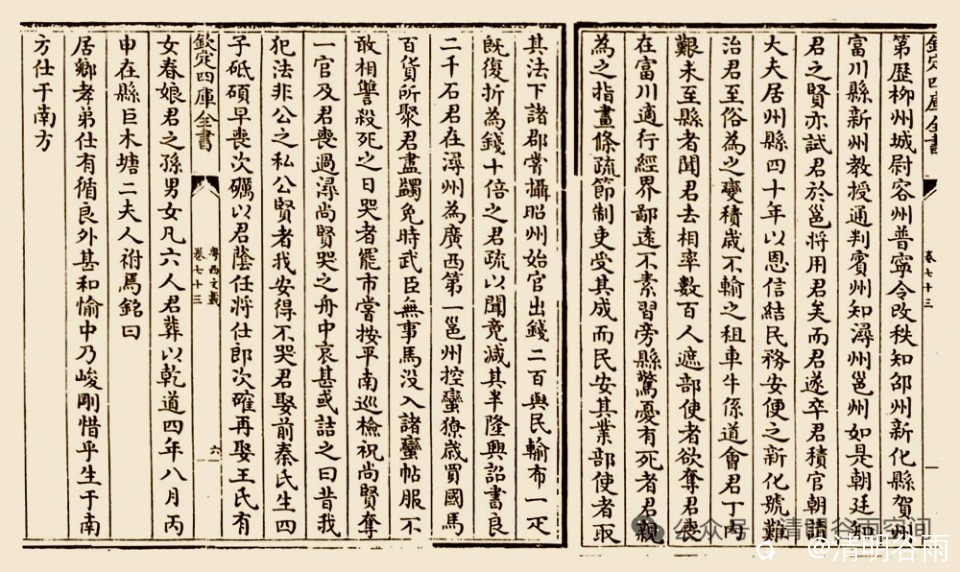 欽定四庫全書
卷七十三
第歷柳州城尉容州普寧令改秩知邵州新化縣賀州
富川縣新州教授通判賓州知潯州邕州如是朝廷知
君之賢亦試君於邕將用君矣而君遂卒君積官朝請
大夫居州縣四十年以恩信結民務安便之新化號難
治君至俗為之變積歲不輸之租車牛係道會君丁内
艱未至縣者聞君去相率數百人遮部使者欲奪君喪
在富川適行經界鄙遠不素習旁縣驚憂有死者君親
為之指畫條疏節制吏受其成而民安其業部使者取
其法下諸郡嘗攝昭州始官出錢二百與民輸布一疋
既復折為錢十倍之君疏以聞竟減其半隆興詔書良
二千石君在潯州為廣西第一邕州控蠻獠歲買國馬
百貨所聚君盡蠲免時武臣無事馬没入諸蠻帖服不
敢相讐殺死之日哭者罷市嘗按平南巡檢祝尚賢奪
一官及君喪過潯尚賢哭之舟中哀甚或詰之曰昔我
犯法非公之私公賢者我安得不哭君娶前秦氏生四
子砥碩早喪次礪以君蔭任將仕郎次確再娶王氏有
欽定四庫全書
粤西文載
卷七十三
六
女春娘君之孫男女凡六人君葬以乾道四年八月丙
申在縣巨木塘二夫人祔焉銘曰
居鄉孝弟仕有循良外甚和愉中乃峻剛惜乎生于南
方仕于南方
公众号·清明谷雨空间
@清明谷雨